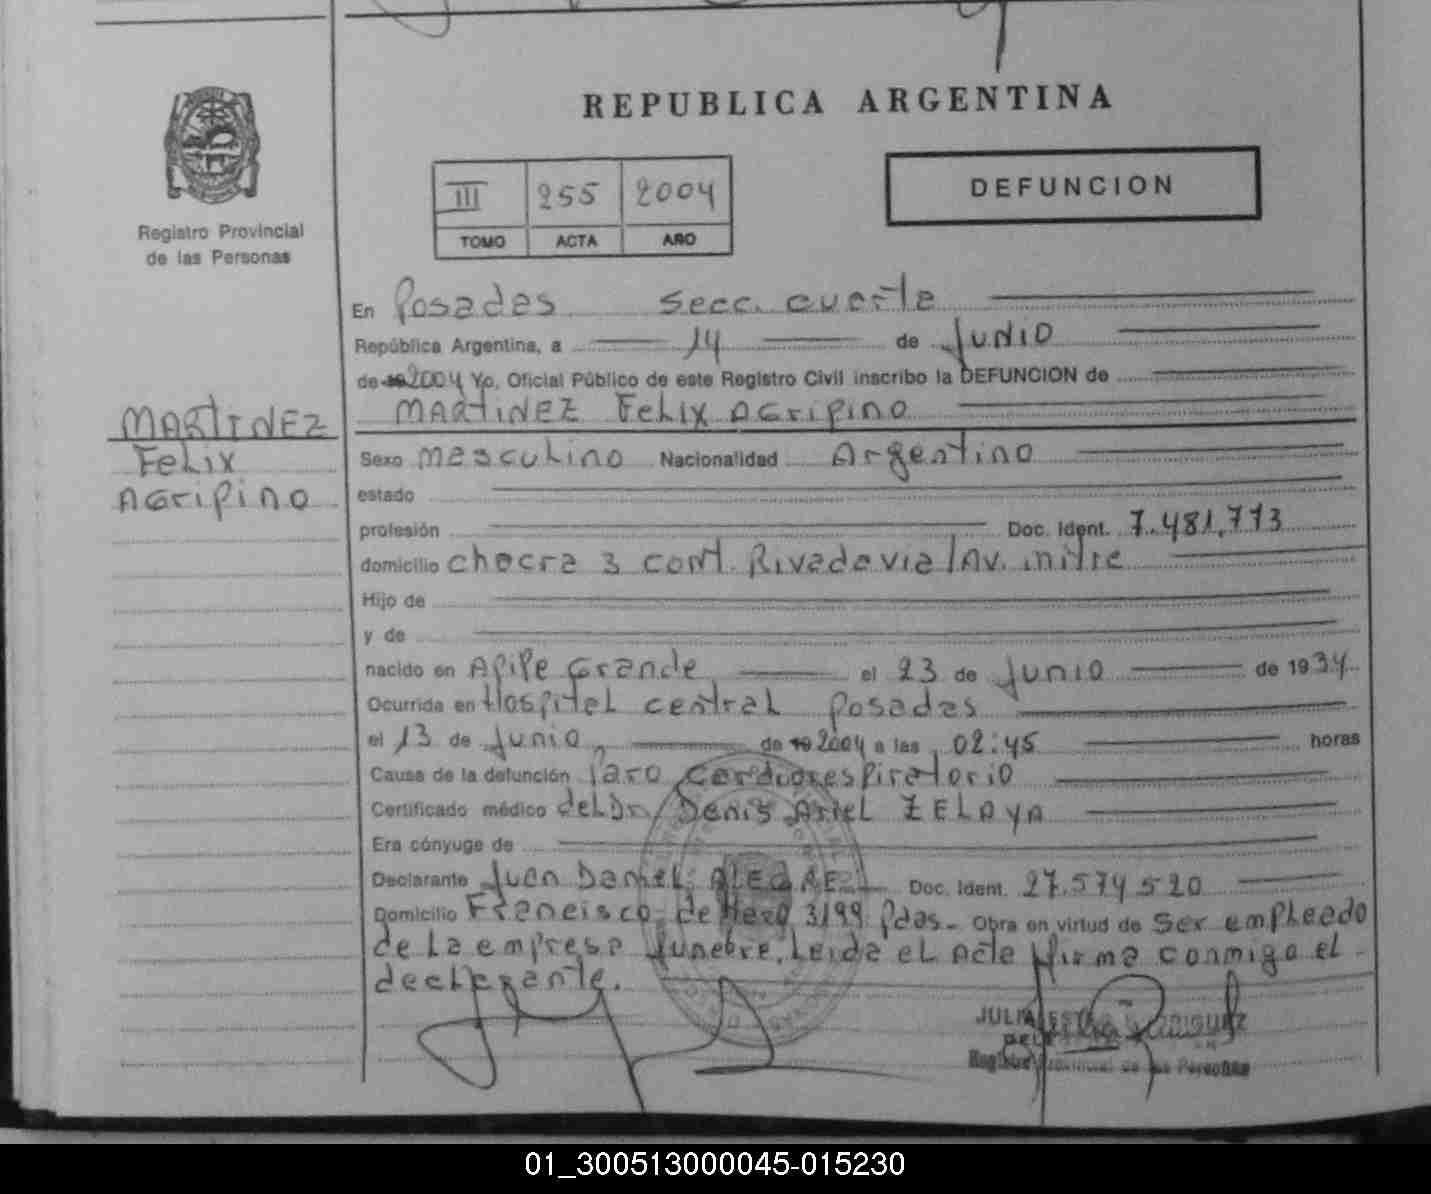 REPUBLICA ARGENTINA
III 255 2004
TOMO ACTA AÑO
DEFUNCION
Registro Provincial
de las Personas
MARTINEZ
FeLix
AGripino
En Posadas Secc. cuarta
República Argentina, a 14 de JUNIO
de 19 2004 Yo, Oficial Público de este Registro Civil inscribo la DEFUNCION de
MARTINEZ FeLix AGripino
Sexo mascuLino Nacionalidad Argentino
estado
profesión Doc. Ident. 7.481.773
domicilio chacra 3 cont. Rivadavia/Av. mitre
Hijo de
y de
nacido en Apipe Grande el 23 de Junio de 1934
Ocurrida en HospitaL centraL Posadas
el 13 de Junio, de 19 2004 a las 02:45 horas
Causa de la defunción Paro Cardiorespiratorio
Certificado médico deL Dr. Denis ArieL ZELAYA
Era cónyuge de
Declarante Juan DanieL ALEGRE Doc. Ident. 27.574.520
Domicilio Francisco de Haro 3199 Pdas- Obra en virtud de Ser empLeado
de La empresa funebre, Leida eL Acta firma conmigo eL
decLarante.
JULIA RODRIGUEZ
Registro Provincial de las Personas
01_300513000045-015230